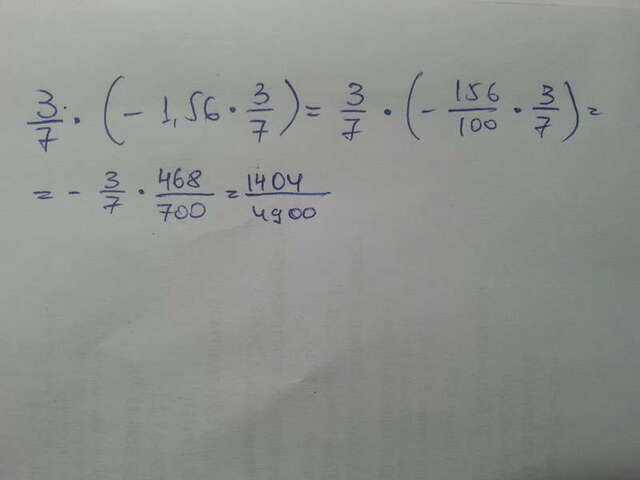 3/7 · (- 1,56 · 3/7) = 3/7 · (- 156/100 · 3/7) =
= - 3/7 · 468/700 = 1404/4900